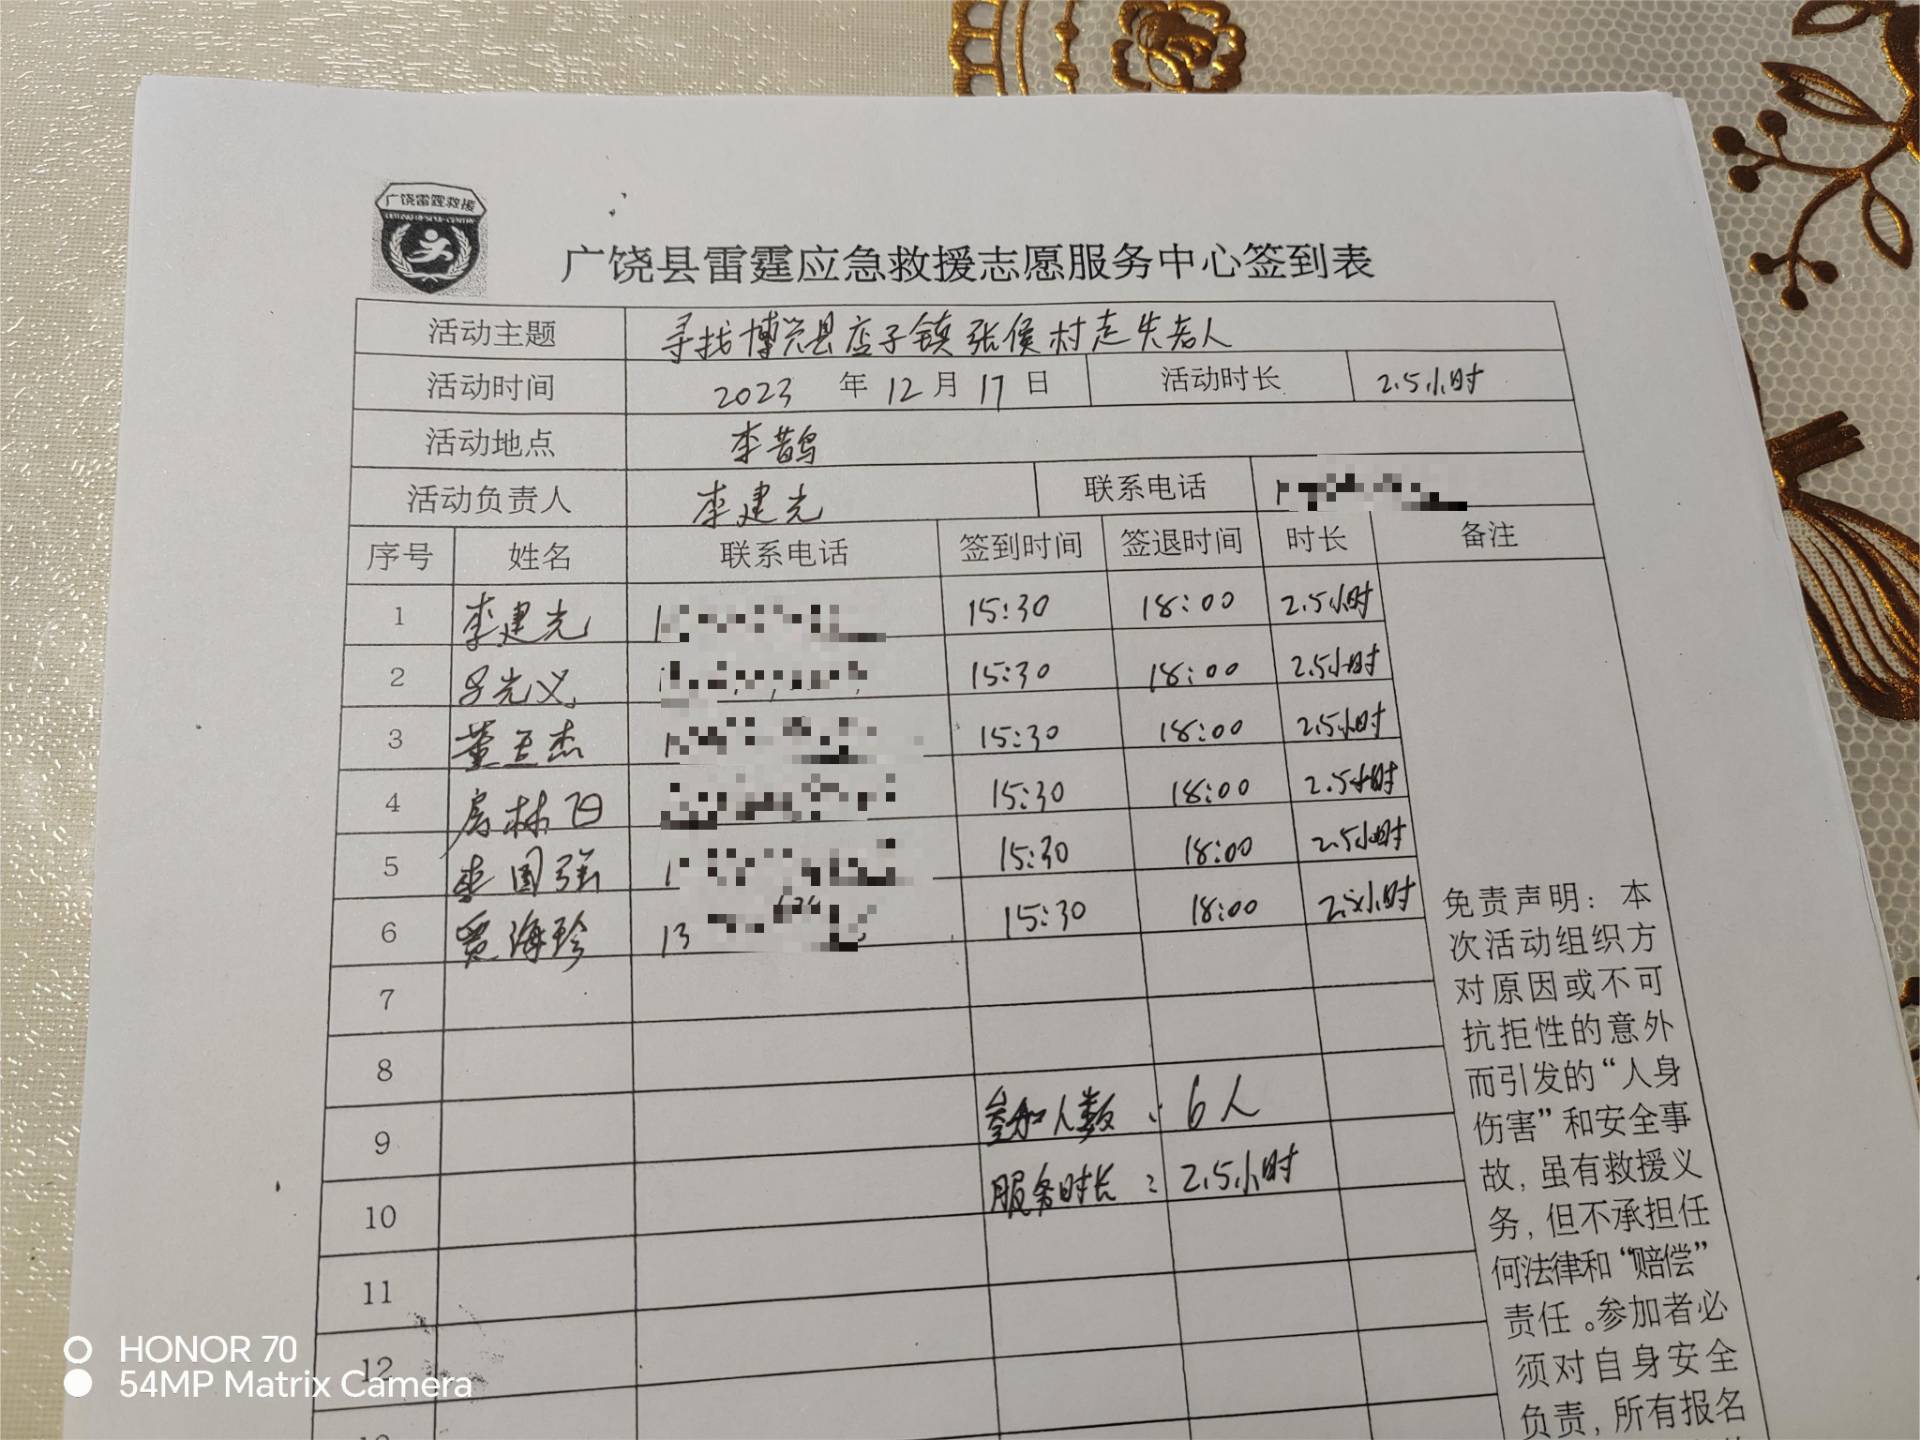 广饶雷霆救援
广饶县雷霆应急救援志愿服务中心签到表
活动主题 寻找博兴县店子镇张侯村走失老人
活动时间 2023 年 12 月 17 日 活动时长 2.5小时
活动地点 李鹊
活动负责人 李建光 联系电话 1
序号 姓名 联系电话 签到时间 签退时间 时长 备注
1 李建光 1 15:30 18:00 2.5小时
2 吕光义 15:30 18:00 2.5小时
3 董玉杰 1 15:30 18:00 2.5小时
4 房林 15:30 18:00 2.5小时
5 李国强 1 15:30 18:00 2.5小时
6 贾海珍 13 15:30 18:00 2.5小时
7
8
9 参加人数：6人
10 服务时长：2.5小时
11
12
免责声明：本
次活动组织方
对原因或不可
抗拒性的意外
而引发的“人身
伤害”和安全事
故，虽有救援义
务，但不承担任
何法律和“赔偿”
责任。参加者必
须对自身安全
负责，所有报名
HONOR 70
54MP Matrix Camera